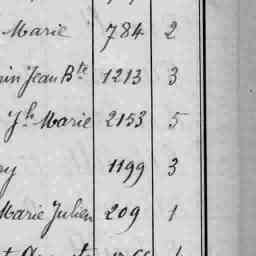 Marie 784 2
in Jean Bte 1213 3
Jh Marie 2153 5
y 1199 3
Marie Julien 209 1